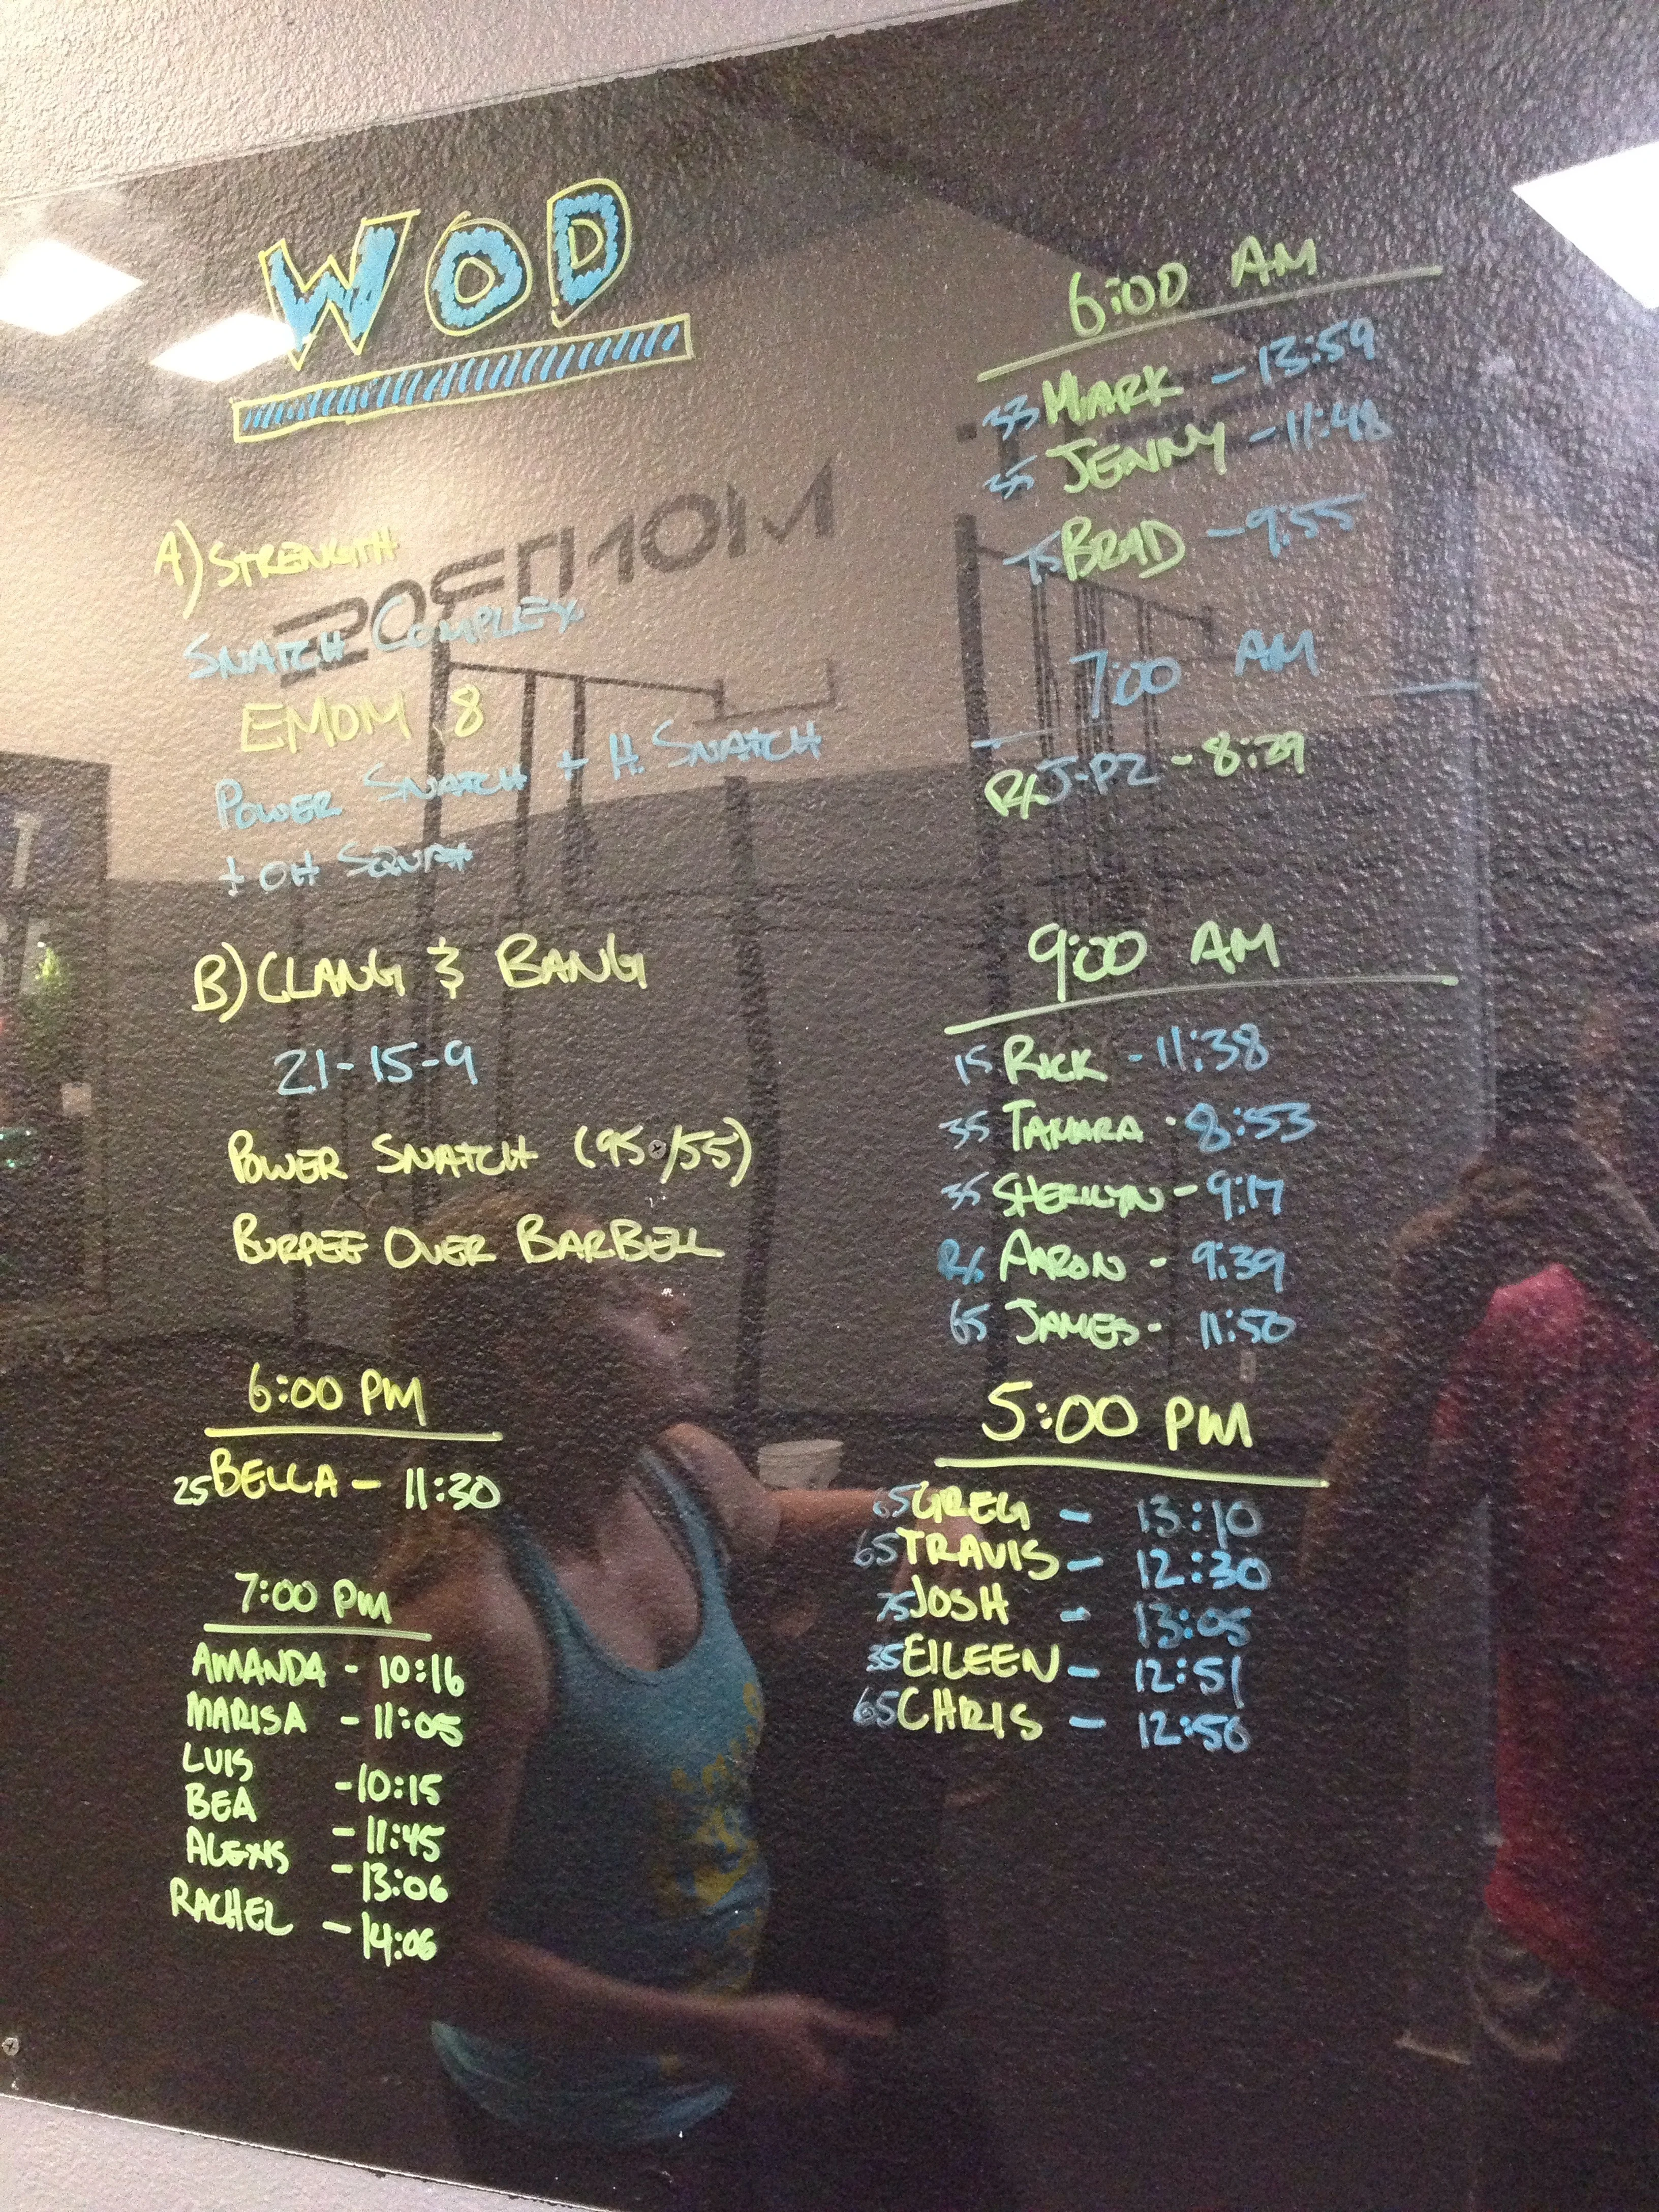 WOD
A) STRENGTH
SNATCH COMPLEX
EMOM 8
POWER SNATCH + H. SNATCH
+ OH SQUAT
B) CLANG & BANG
21-15-9
POWER SNATCH (95/55)
BURPEE OVER BARBELL
6:00 PM
25 BELLA - 11:30
7:00 PM
AMANDA - 10:16
MARISA - 11:05
LUIS - 10:15
BEA - 11:45
ALEXIS - 13:06
RACHEL - 14:06
6:00 AM
MARK - 13:59
35 JENNY - 11:48
75 BRAD - 9:55
7:00 AM
RX J-PZ - 8:29
9:00 AM
15 RICK - 11:38
35 TAMARA - 8:53
35 SHERILYN - 9:17
RX AARON - 9:39
65 JAMES - 11:50
5:00 PM
65 GREG - 13:10
65 TRAVIS - 12:30
75 JOSH - 13:05
35 EILEEN - 12:51
65 CHRIS - 12:50